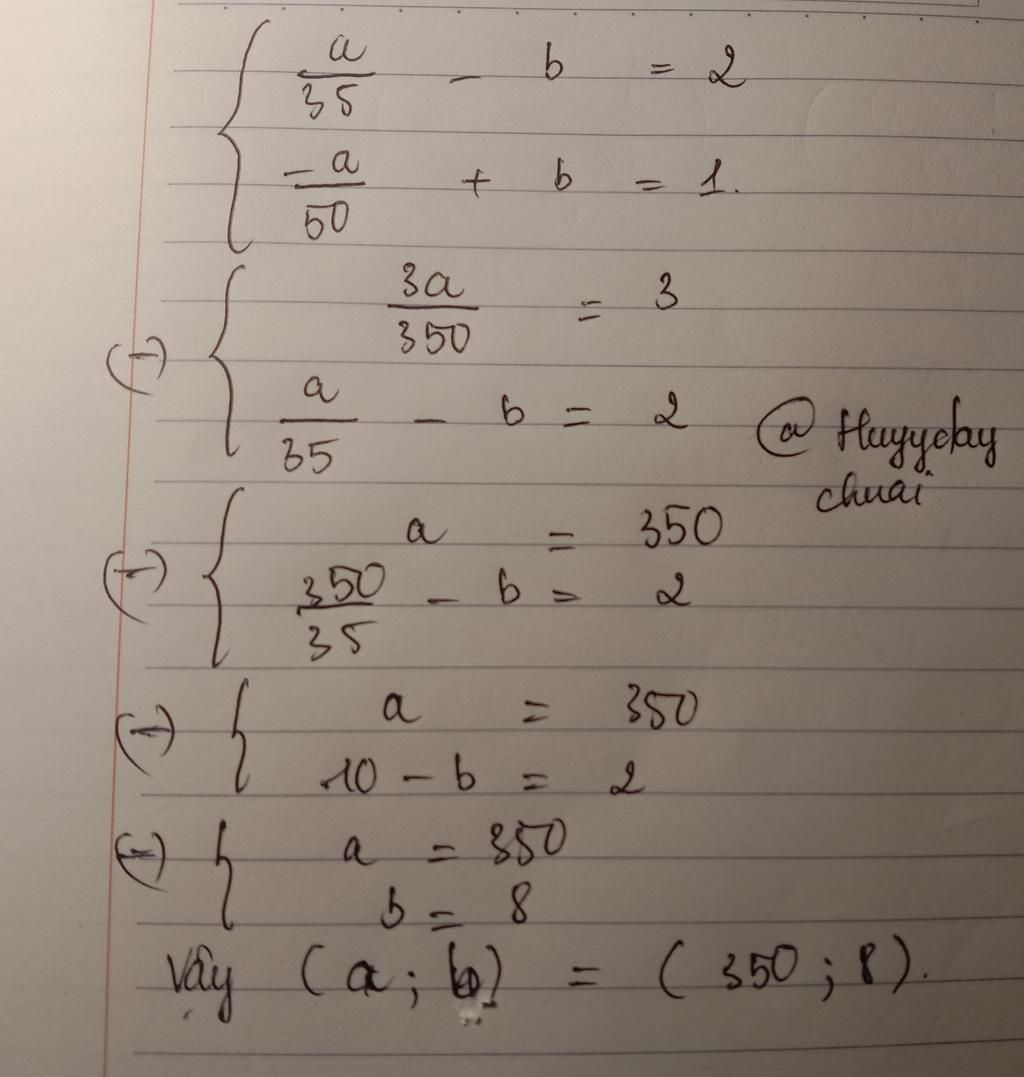 a/35 - b = 2
-a/50 + b = 1.
3a/350 = 3
(-) a/35 - b = 2
@ Huyyday
chuai
a = 350
(-) 350/35 - b = 2
a = 350
(-) 10 - b = 2
(=) a = 350
b = 8
Vậy (a; b) = (350; 8).